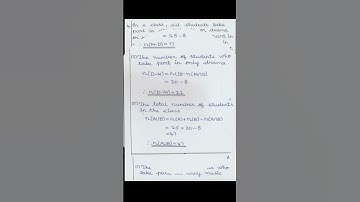 In a class, all students take
part in or drama
= 25 - 8 part in
in
n(M-D) = 17
(ii) The number of students who
take part in only drama.
n(D-M) = n(D) - n(M∩D)
= 30 - 8
∴ n(D-M) = 22
(iii) The total number of students
in the class
n(A∪B) = n(A) + n(B) - n(A∩B)
= 25 + 30 - 8
= 47
∴ n(A∪B) = 47
(i) The who
take part only music